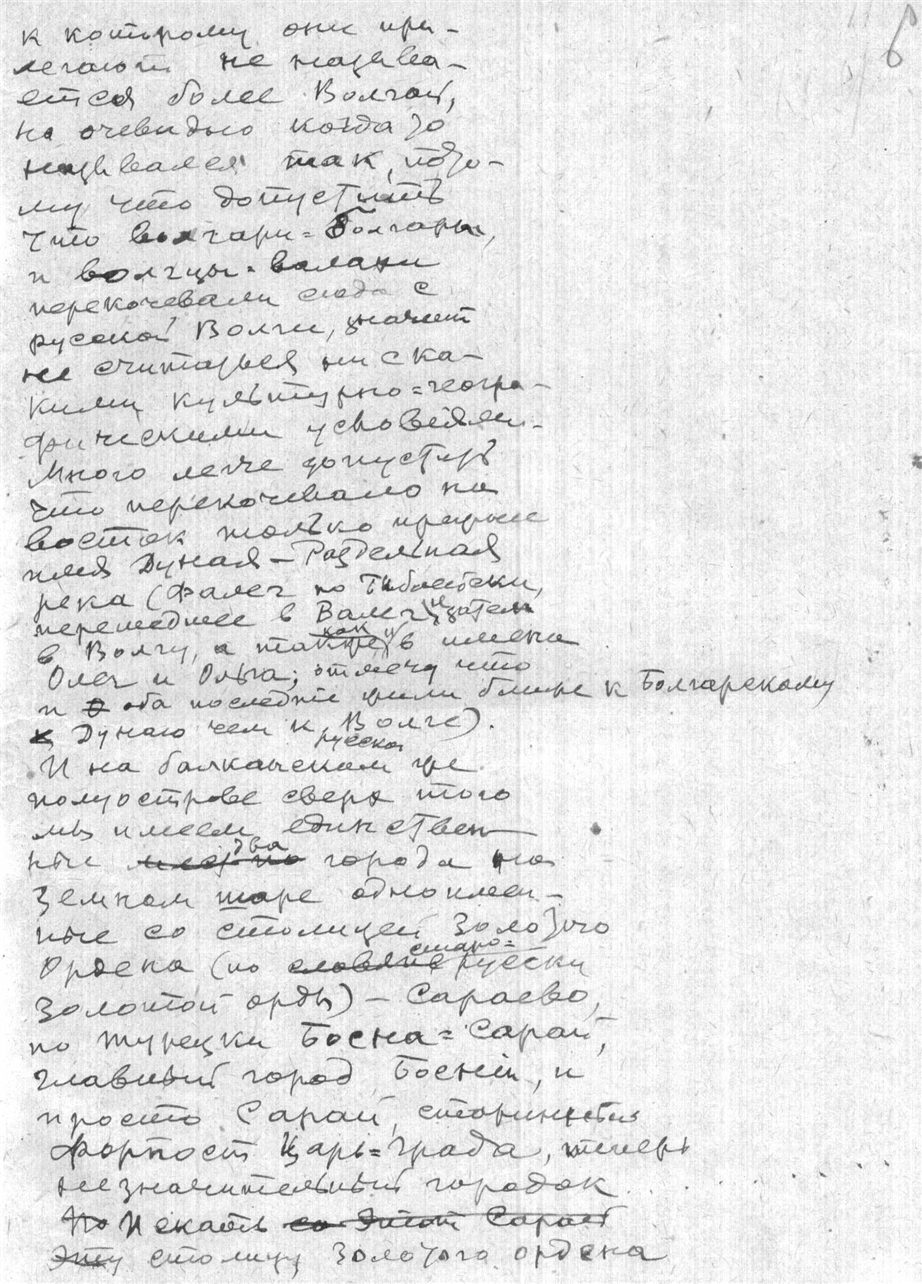 6
к которому они при-
легают не называ-
ется более Волгой,
но очевидно когда то
назывался так, пото-
му что допустить
что волгари = Болгары,
и волгцы = валахи
перекочевали сюда с
русской Волги, значит
не считаться ни с ка-
кими культурно = геогра-
фическими условиями.
Много легче допустить
что перекочевало на
восток только
имя Дуная — Раздельная
река (Фалег по Библейски,
перешедшее в Валег и затем
в Волгу, а также как и в имена
Олег и Ольга; отмечу что
и оба последние жили ближе к Болгарскому
Дунаю чем к русской Волге).
И на балканском же
полуострове сверх того
мы имеем единствен-
ные два города на
земном шаре одноимен-
ные со столицей Золотого
Ордена (по словянс старо=русски
Золотой орды) — Сараево,
по турецки Босна = Сарай,
главный город Боснии, и
просто Сарай, старинный
форпост Царь = Града, теперь
незначительный городок
Но Искать со этот Сарай
Эту столицу Золотого ордена